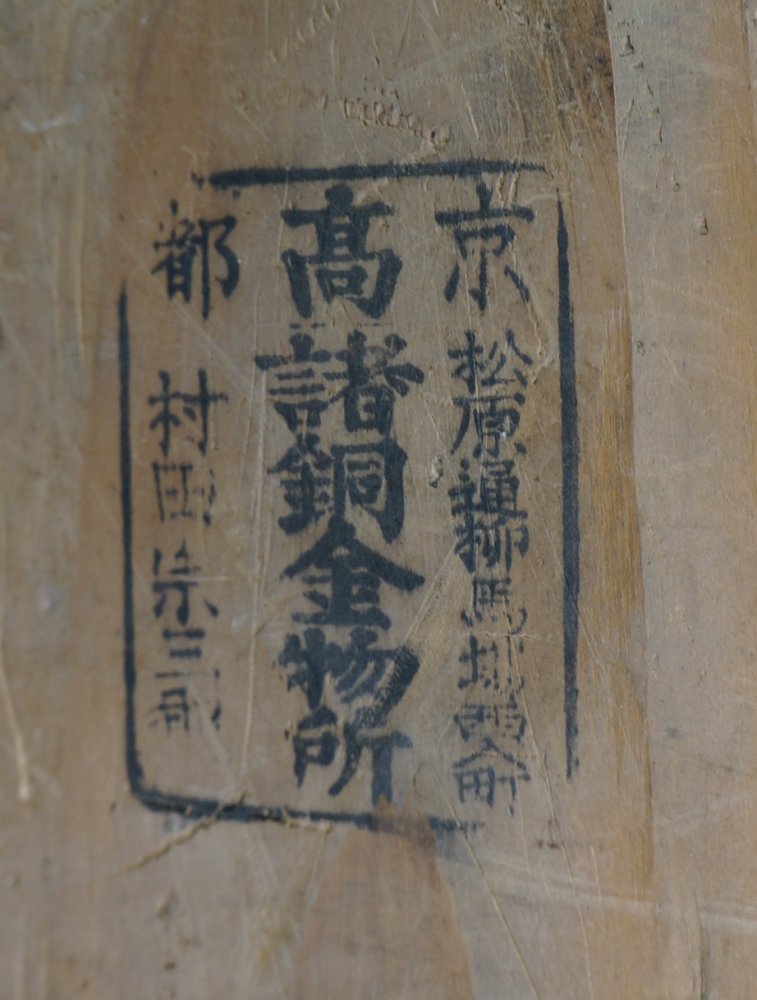 京 松原通柳馬場西入町
高 諸銅金物所
都 村田宗三郎